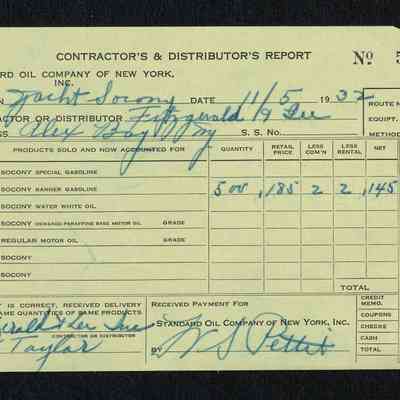 CONTRACTOR'S & DISTRIBUTOR'S REPORT Nº 5
RD OIL COMPANY OF NEW YORK, INC.
N Yacht Socony DATE 11/5 1932 ROUTE N
TOR OR DISTRIBUTOR Fitzgerald & Lee EQUIPT.
SS Alex Bay NY S. S. NO. METHOD
PRODUCTS SOLD AND NOW ACCOUNTED FOR QUANTITY RETAIL PRICE LESS COM'N LESS RENTAL NET
SOCONY SPECIAL GASOLINE
SOCONY BANNER GASOLINE 500 .185 2 2 .145
SOCONY WATER WHITE OIL
SOCONY (DEWAXED) PARAFFINE BASE MOTOR OIL GRADE
REGULAR MOTOR OIL GRADE
SOCONY
SOCONY
TOTAL
T IS CORRECT, RECEIVED DELIVERY
AME QUANTITIES OF SAME PRODUCTS
erald & Lee Inc
CONTRACTOR OR DISTRIBUTOR
Taylor
RECEIVED PAYMENT FOR
STANDARD OIL COMPANY OF NEW YORK, INC.
BY W S Pettit
CREDIT MEMO.
COUPONS
CHECKS
CASH
TOTAL